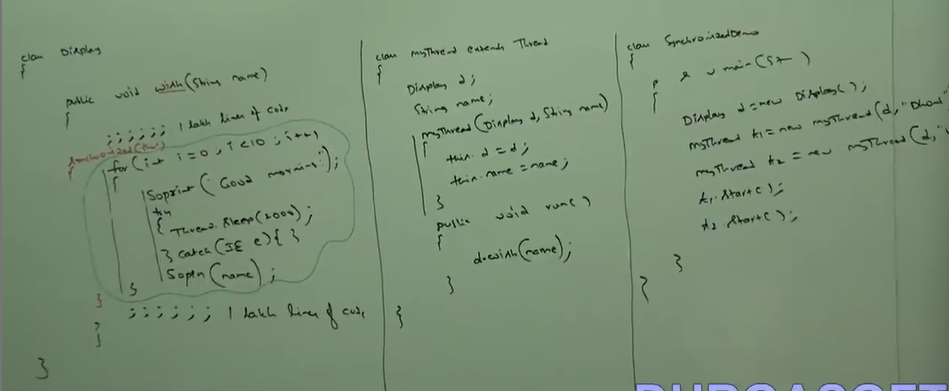 class Display
{
public void wish(String name)
{
;;;;;; 1 lakh lines of code
synchronized(this)
{
for(int i=0; i<10; i++)
{
Soprint("Good morning:");
try
{ Thread.sleep(2000);
} catch(IE e){ }
Sopln(name);
}
}
;;;;;; 1 lakh lines of code
}
}
class myThread extends Thread
{
Display d;
String name;
myThread(Display d, String name)
{
this.d = d;
this.name = name;
}
public void run()
{
d.wish(name);
}
}
class SynchronizedDemo
{
p s v main(St )
{
Display d = new Display();
myThread t1 = new myThread(d, "Dhoni"
myThread t2 = new myThread(d,
t1.start();
t2.start();
}
}